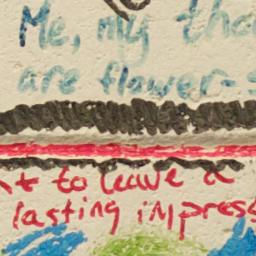 Me, my tho
are flower-s
to leave a
lasting impress